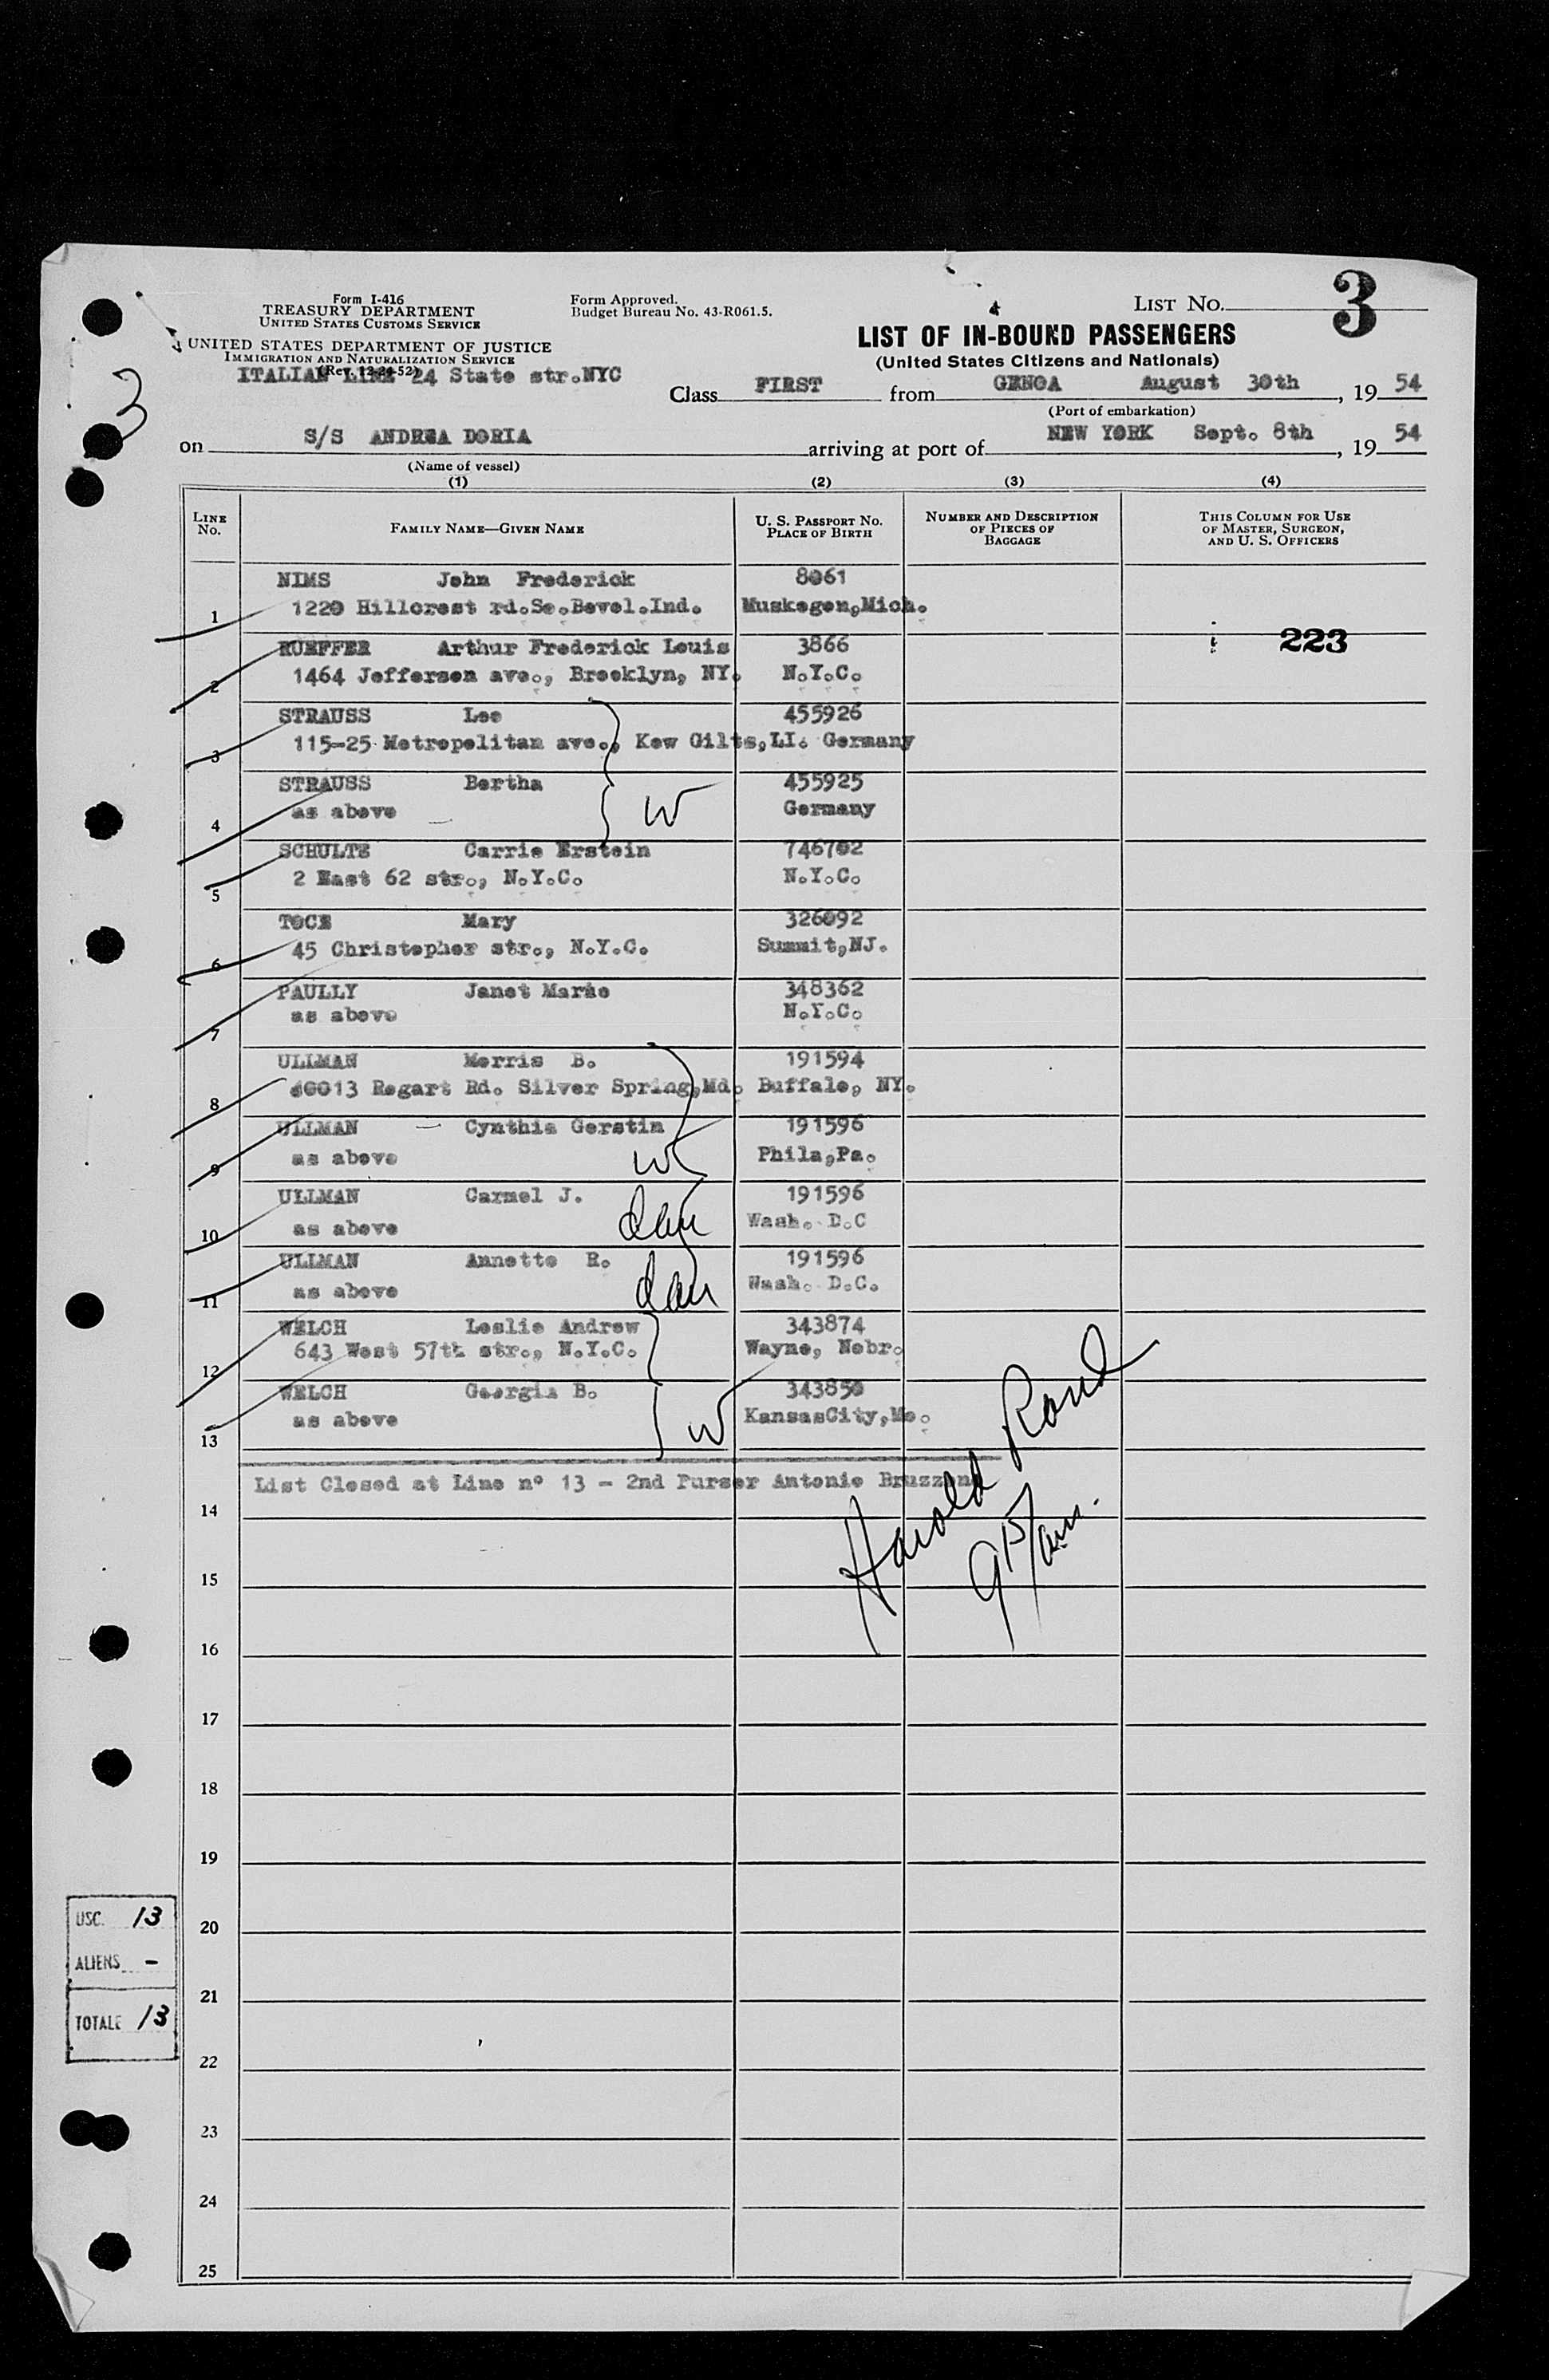 Form I-416
TREASURY DEPARTMENT
UNITED STATES CUSTOMS SERVICE
UNITED STATES DEPARTMENT OF JUSTICE
IMMIGRATION AND NATURALIZATION SERVICE
(Rev. 12-24-52)
ITALIAN LINE 24 State str.NYC
Form Approved.
Budget Bureau No. 43-R061.5.
LIST NO. 3
LIST OF IN-BOUND PASSENGERS
(United States Citizens and Nationals)
3
Class FIRST from GENOA August 30th, 19 54
(Port of embarkation)
on S/S ANDREA DORIA arriving at port of NEW YORK Sept. 8th, 19 54
(Name of vessel)
(1) (2) (3) (4)
LINE No. FAMILY NAME—GIVEN NAME U. S. PASSPORT NO. PLACE OF BIRTH NUMBER AND DESCRIPTION OF PIECES OF BAGGAGE THIS COLUMN FOR USE OF MASTER, SURGEON, AND U. S. OFFICERS
NIMS John Frederick 8061
1 1220 Hillcrest rd.So.Bevel.Ind. Muskegon,Mich.
RUEFFER Arthur Frederick Louis 3866 223
2 1464 Jefferson ave., Brooklyn, NY. N.Y.C.
STRAUSS Leo 455926
3 115-25 Metropolitan ave., Kew Gilts,LI. Germany
STRAUSS Bertha 455925
4 as above W Germany
SCHULTE Carrie Erstein 746702
5 2 East 62 str., N.Y.C. N.Y.C.
TOCE Mary 326092
6 45 Christopher str., N.Y.C. Summit,NJ.
PAULLY Janet Marie 348362
7 as above N.Y.C.
ULLMAN Morris B. 191594
8 10013 Regart Rd. Silver Spring,Md. Buffalo, NY.
ULLMAN Cynthia Gerstin 191596
9 as above W Phila,Pa.
ULLMAN Carmel J. 191596
10 as above dau Wash. D.C
ULLMAN Annette R. 191596
11 as above dau Wash. D.C.
WELCH Leslie Andrew 343874
12 643 West 57th str., N.Y.C. Wayne, Nebr.
WELCH Georgia B. 343850
13 as above W KansasCity,Mo.
List Closed at Line n° 13 - 2nd Purser Antonio Bruzzone
Harold Rand
9 15/am.
14
15
16
17
18
19
USC. 13
20
ALIENS -
21
TOTALE 13
22
23
24
25